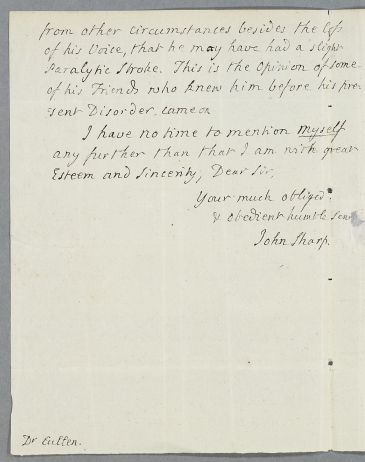 from other circumstances besides the loss
of his Voice, that he may have had a slight
Paralytic Stroke. This is the Opinion of some
of his Friends who knew him before his pre-
sent Disorder came on
I have no time to mention myself
any further than that I am with great
Esteem and Sincerity, Dear Sir,
Your much obliged
& obedient humble Serv
John Sharp.
Dr Cullen.